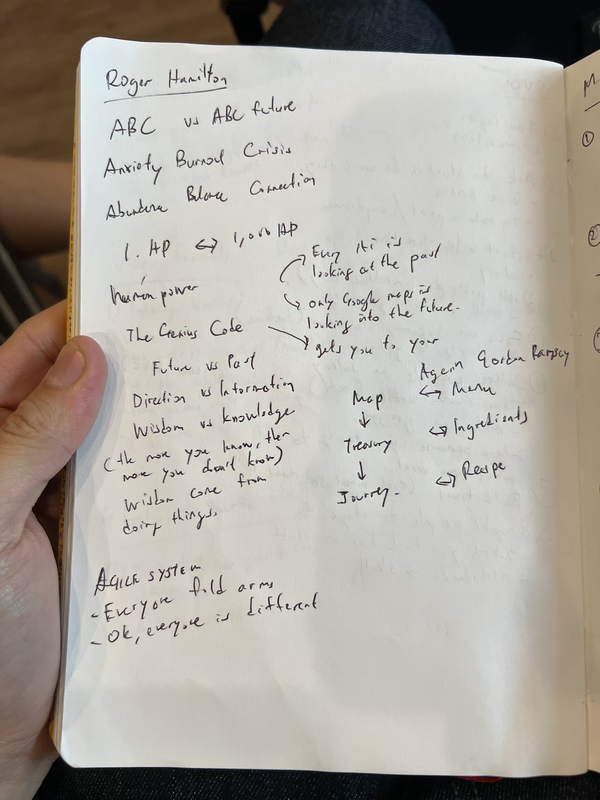 Roger Hamilton
ABC vs ABC future
Anxiety Burnout Crisis
Abundance Balance Connection
1. HP ↔ 1,000 HP
human power
Every is
looking at the past
only Google maps is
looking into the future.
The Genius Code
gets you to your
Future vs Past
Direction vs Information
Wisdom vs knowledge
(the more you know, the
more you don't know)
Wisdom come from
doing things.
Again Gordon Ramsay
Map ↔ Menu
↓
Treasury ↔ Ingredients
↓
Journey. ↔ Recipe
AGILE SYSTEM
- Everyone fold arms
- Ok, everyone is different
M
①
②